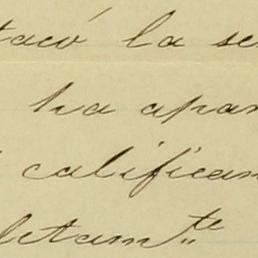 tacó la se
ha apar
califican
letam.te